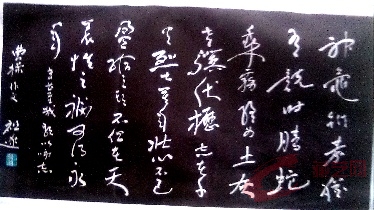 神龜雖壽猶
有竟时腾蛇
乘霧終为土灰
老驥伏櫪志在千
里烈士暮年壮心不已
盈缩之期不但在天
养怡之福可得永
年
幸甚至哉歌以咏志
曹操